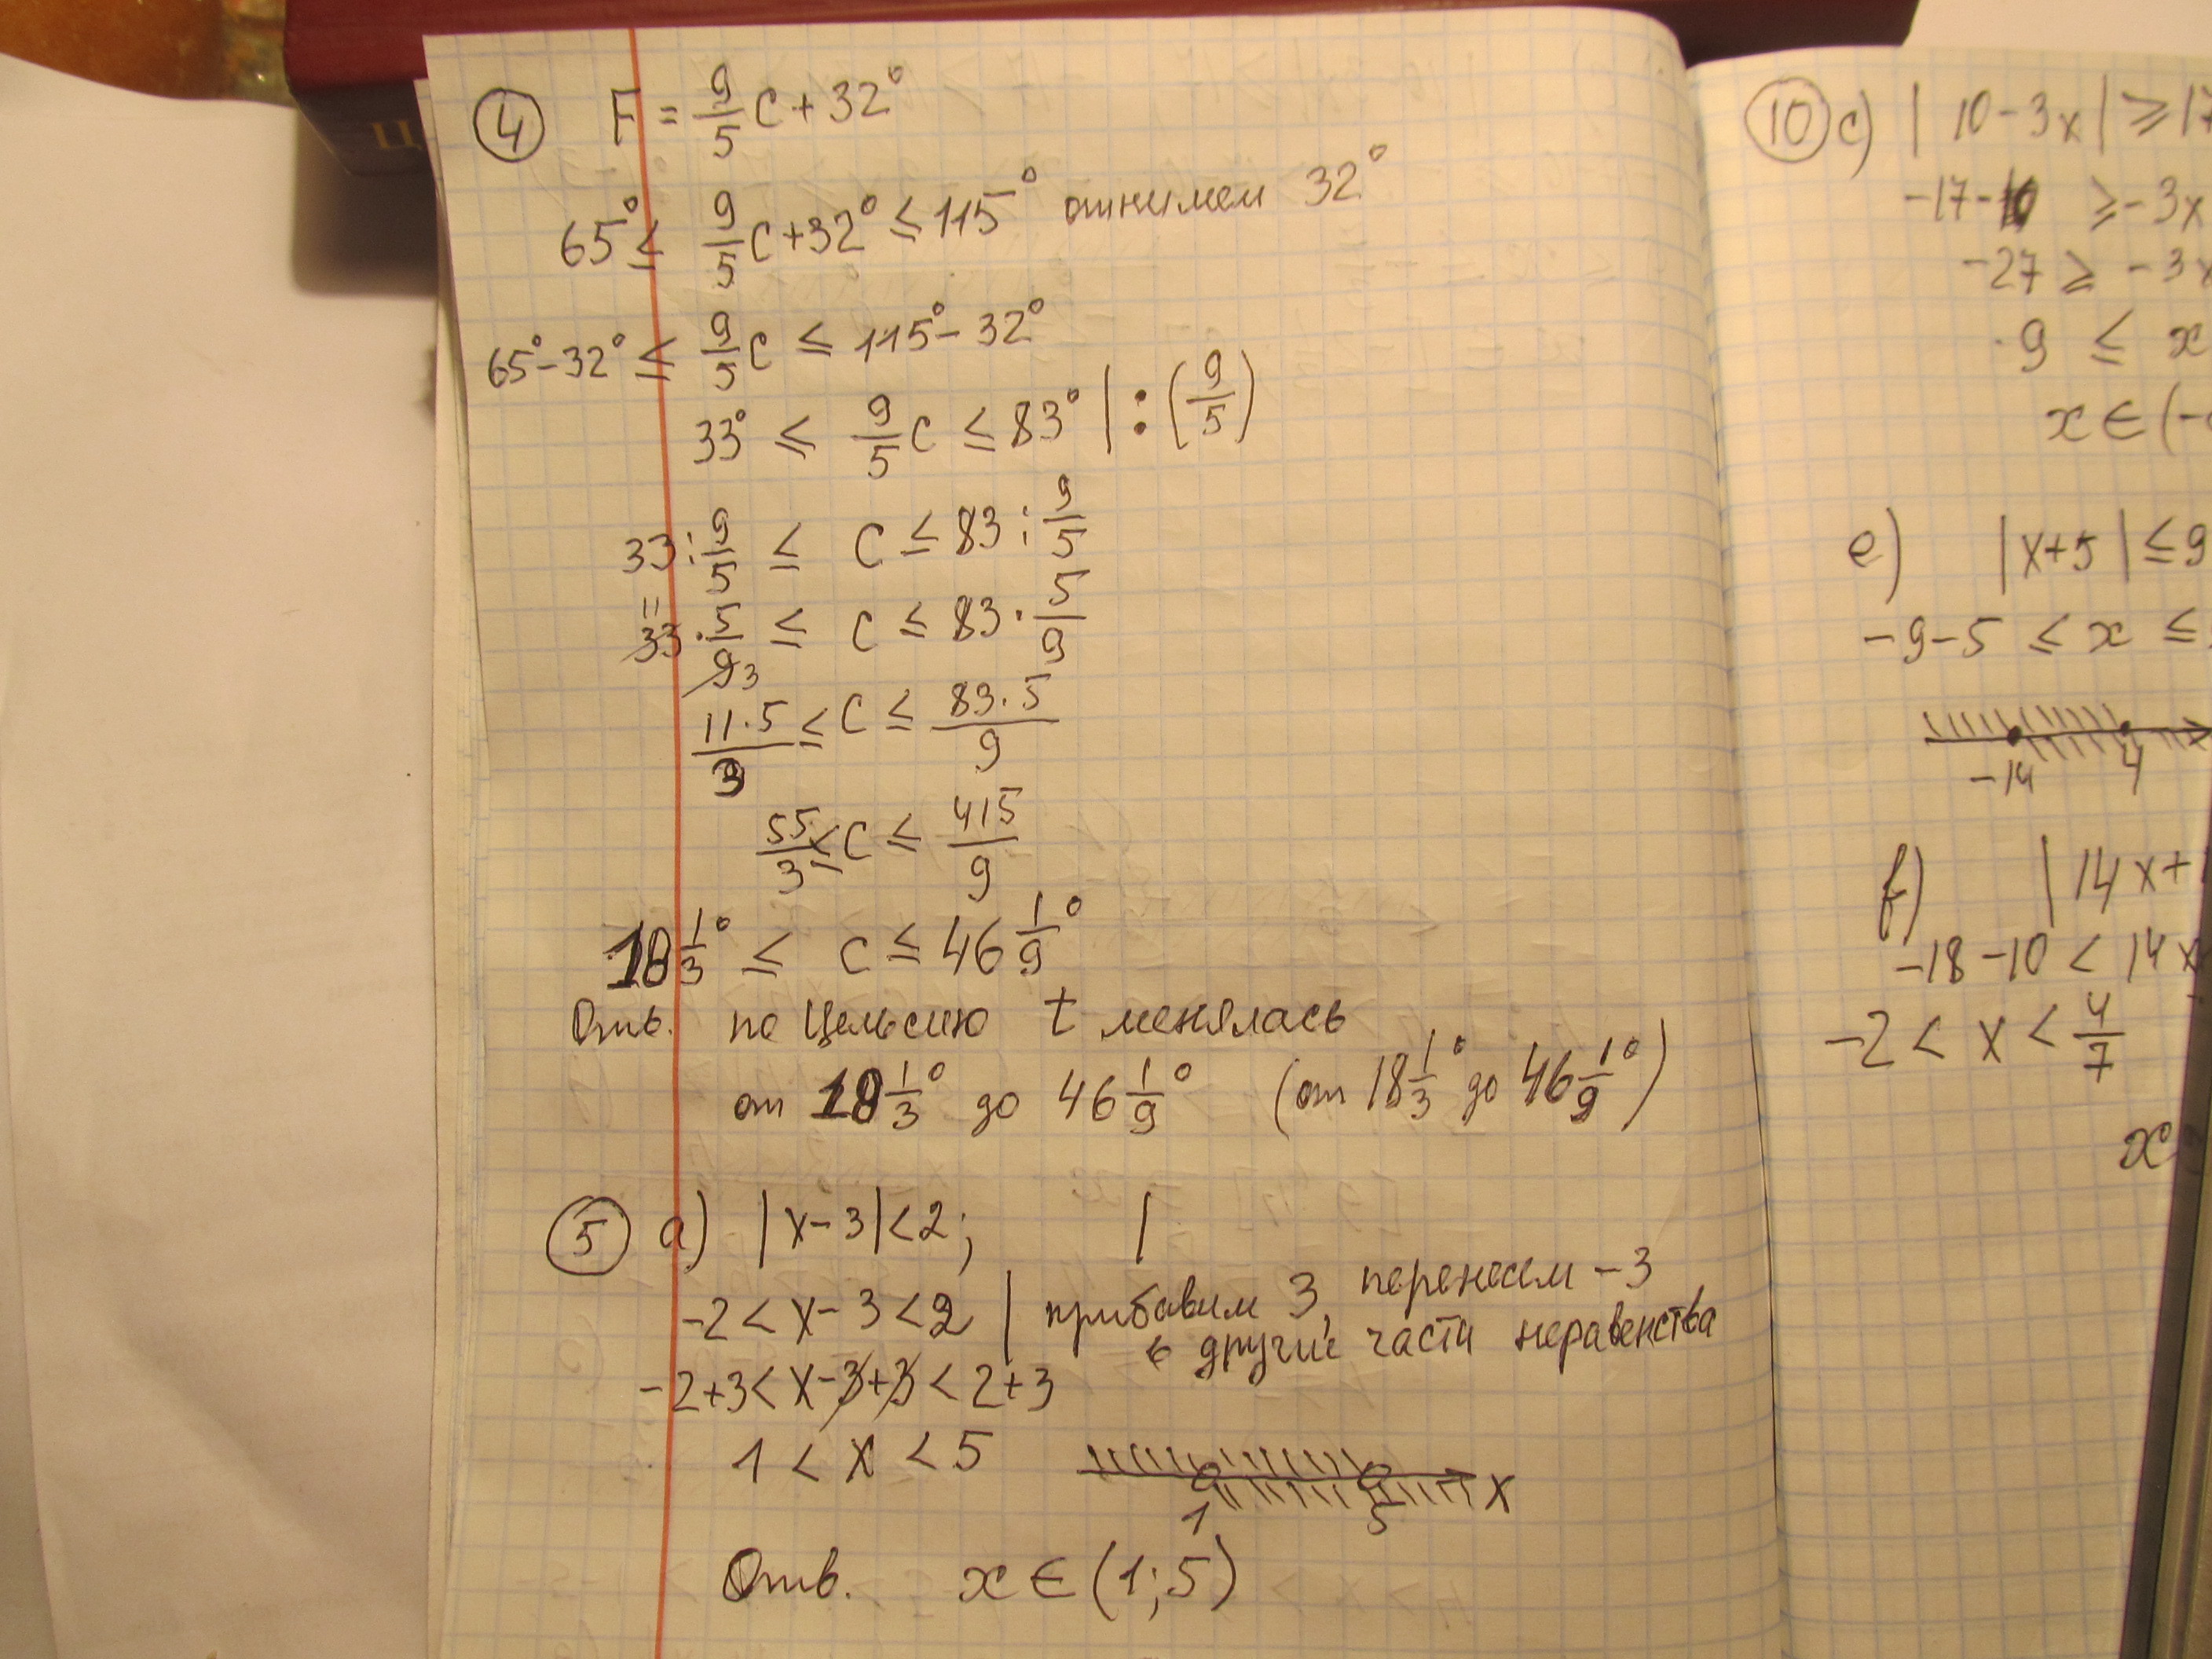 Ц
④ F = 9/5 C + 32°
65° ≤ 9/5 C + 32° ≤ 115° отнимем 32°
65° - 32° ≤ 9/5 C ≤ 115° - 32°
33° ≤ 9/5 C ≤ 83° | : (9/5)
33 : 9/5 ≤ C ≤ 83 : 9/5
11
33 · 5/9 3 ≤ C ≤ 83 · 5/9
11·5/3 ≤ C ≤ 83·5/9
55/3 ≤ C ≤ 415/9
18 1/3° ≤ C ≤ 46 1/9°
Отв. по Цельсию t менялась
от 18 1/3° до 46 1/9° (от 18 1/3° до 46 1/9°)
⑤ a) |x - 3| < 2; |
-2 < x - 3 < 2 | прибавим 3, перенесем -3
в другие части неравенства
-2+3 < x - 3 + 3 < 2+3
1 < x < 5
1 5 x
Отв. x ∈ (1; 5)
⑩ c) | 10 - 3x | ≥ 17
-17 - 10 ≥ -3x
-27 ≥ -3x
9 ≤ x
x ∈ (-
e) |x+5| ≤ 9
-9-5 ≤ x ≤
-14 4
f) | 14x +
-18 - 10 < 14x
-2 < x < 4/7
x